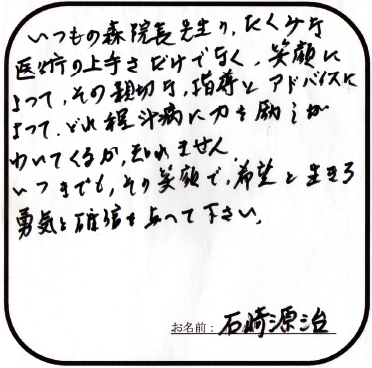 いつもの森院長先生の、たくみな
医療の上手さだけでなく、笑顔に
よって、その親切な、指導とアドバイスに
よって、どれ程斗病に力と励しが
わいてくるか、知れません。
いつまでも、その笑顔で、希望と生きる
勇気と確信を与って下さい。
お名前：石崎源治